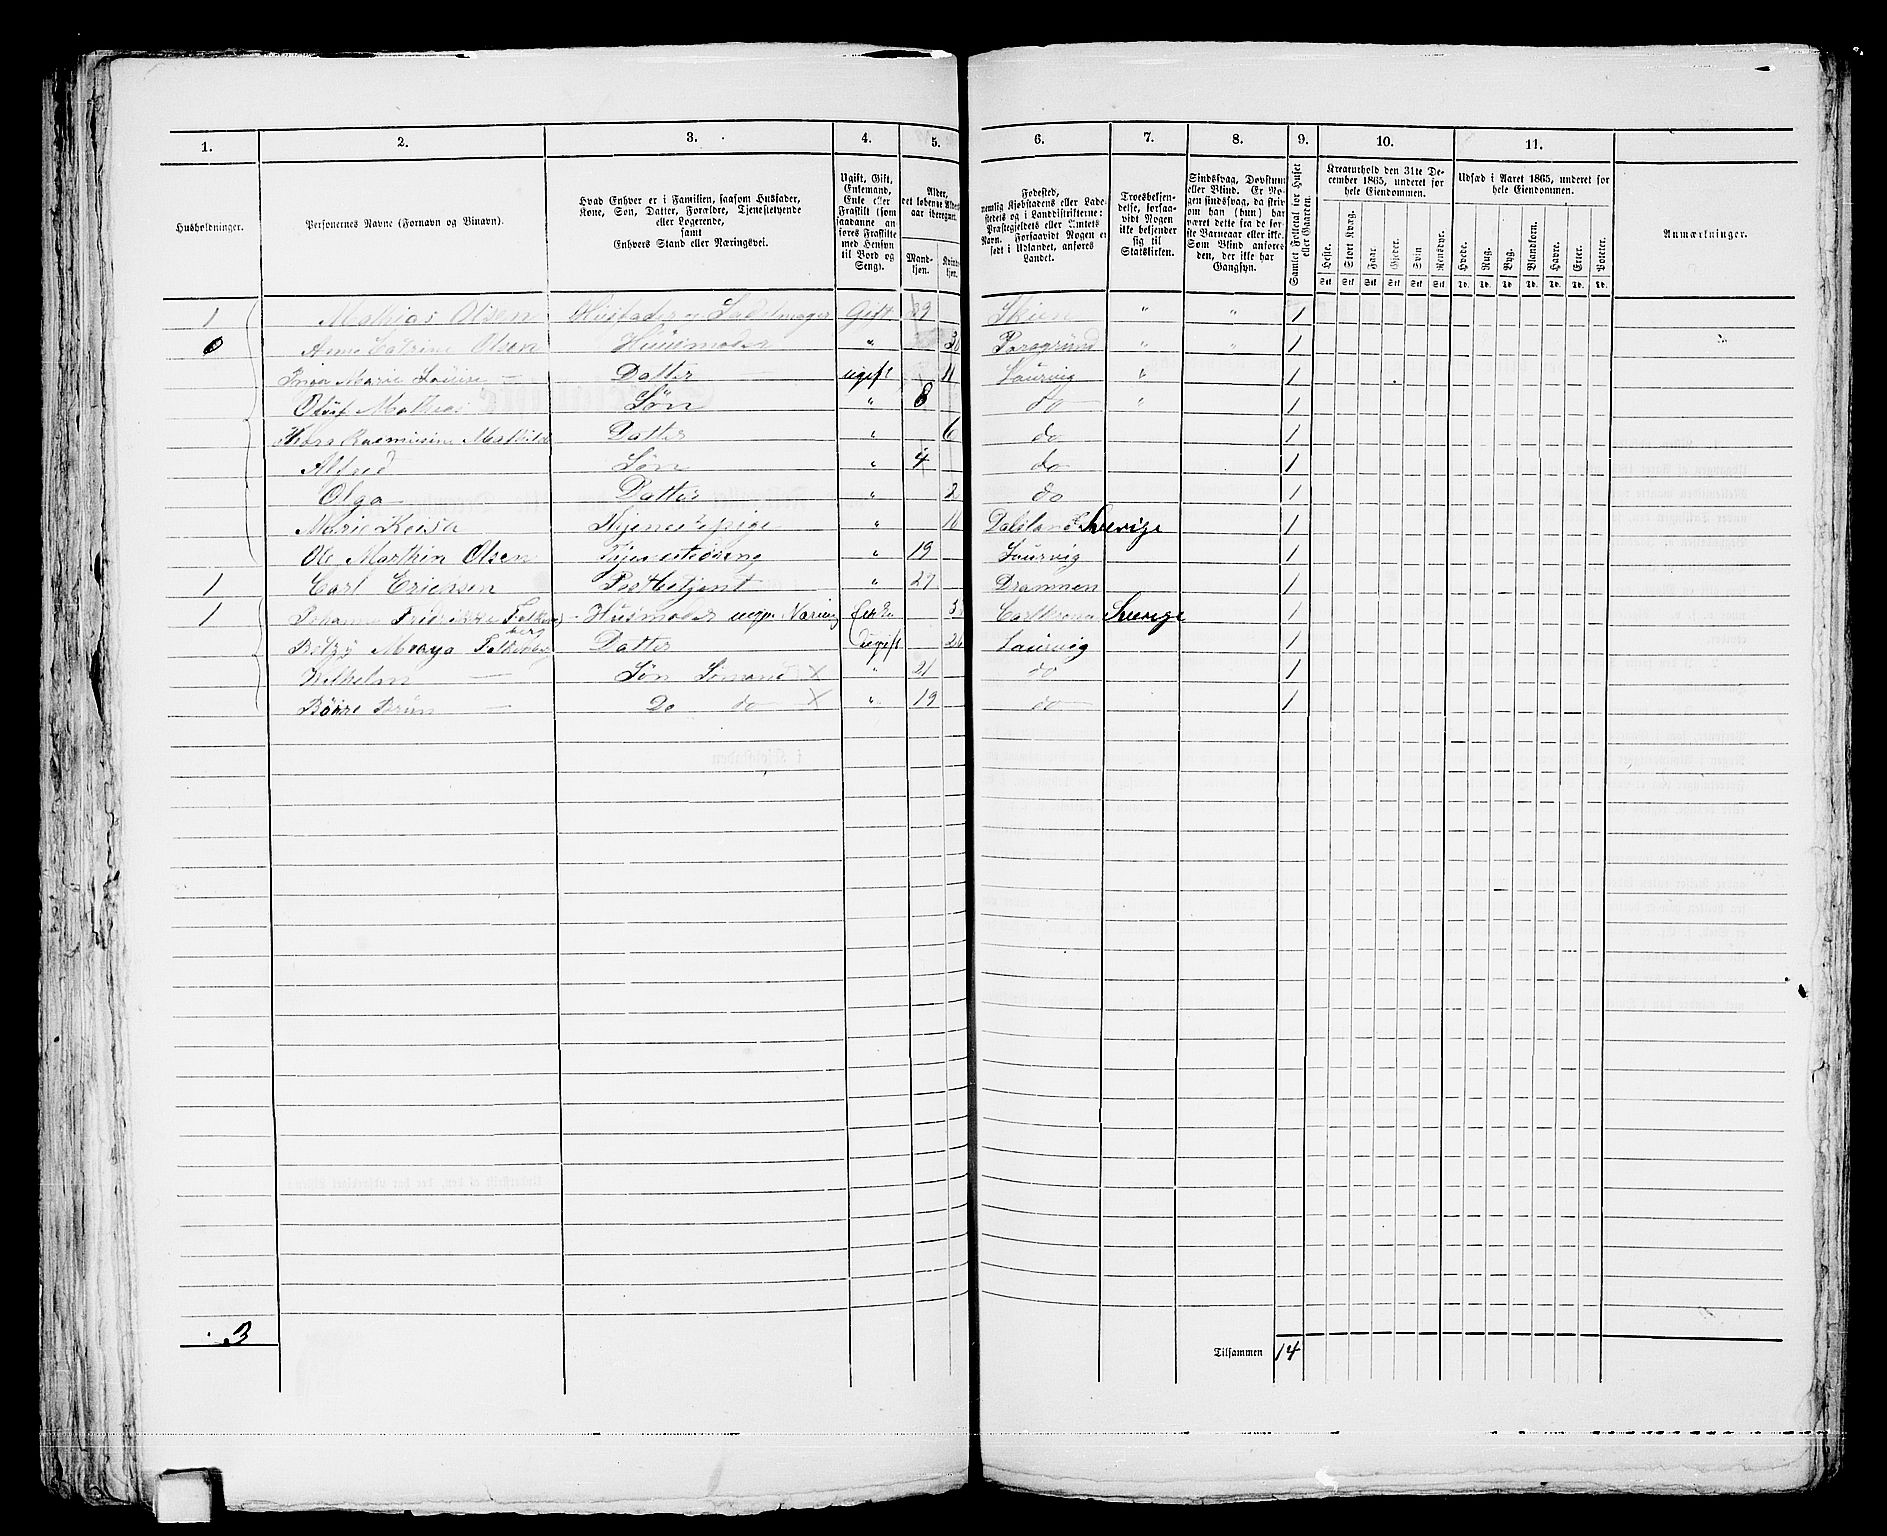 1. 2. 3. 4. 5. 6. 7. 8. 9. 10. 11.
Husholdninger.
Personernes Navne (Fornavn og Binavn).
Hvad Enhver er i Familien, saasom Husfader,
Kone, Søn, Datter, Forældre, Tjenestetyende
eller Logerende,
samt
Enhvers Stand eller Næringsvei.
Ugift, Gift,
Enkemand,
Enke eller
Fraskilt (som
saadanne an-
føres Fraskilte
med Hensyn
til Bord og
Seng).
Alder,
det løbende Alders-
aar iberegnet.
Mand-
kjøn.
Kvinde-
kjøn.
Fødested,
nemlig Kjøbstadens eller Lade-
stedets og i Landdistrikterne:
Præstegjeldets eller Amtets
Navn. Forsaavidt Nogen er
født i Udlandet, anføres
Landet.
Troesbekjen-
delse, forsaa-
vidt Nogen
ikke bekjender
sig til
Statskirken.
Sindssvag, Døvstum
eller Blind. Er No-
gen sindssvag, da skriv
om han (hun) har
været dette fra de før-
ste Barneaar eller ikke.
Som Blind anføres
den, der ikke har
Gangsyn.
Samlet Folketal for Huset
eller Gaarden.
Kreaturhold den 31te De-
cember 1865, underet for
hele Eiendommen.
Heste. Stort Kvæg. Faar. Gjeder. Svin Rensdyr.
Stk Stk Stk Stk Stk Stk
Udsæd i Aaret 1865, underet for
hele Eiendommen.
Hvede. Rug. Byg. Blandkorn. Havre. Erter. Poteter.
Td. Td. Td. Td. Td. Td. Td.
Anmærkninger.
1 Mathias Olsen Husfader og Sadelmager Gift 39 Skien " " 1
0 Anne Catrine Olsen Huusmoder " Porsgrund " " 1
Inga Marie Louise — Datter — ugift 11 Laurvig " 1
Oluf Mathias Søn " 8 do " 1
Rasmusine Mathilde Datter " 6 do 1
Alfred Søn " 4 do 1
Olga Datter " 2 do 1
Marie Tjenestepige " 16 Dalsland Sverige 1
Ole Marthin Olsen " 19 Laurvig 1
1 Carl Ericksen Postbetjent " 27 Drammen 1
1 Johanne Husmoder Enke Sverige 1
Betzy Falkenberg Datter ugift 26 Laurvig 1
Wilhelm — Søn Sømand X " 21 do 1
Børre Brun — Do do X " 19 do 1
3
Tilsammen 14